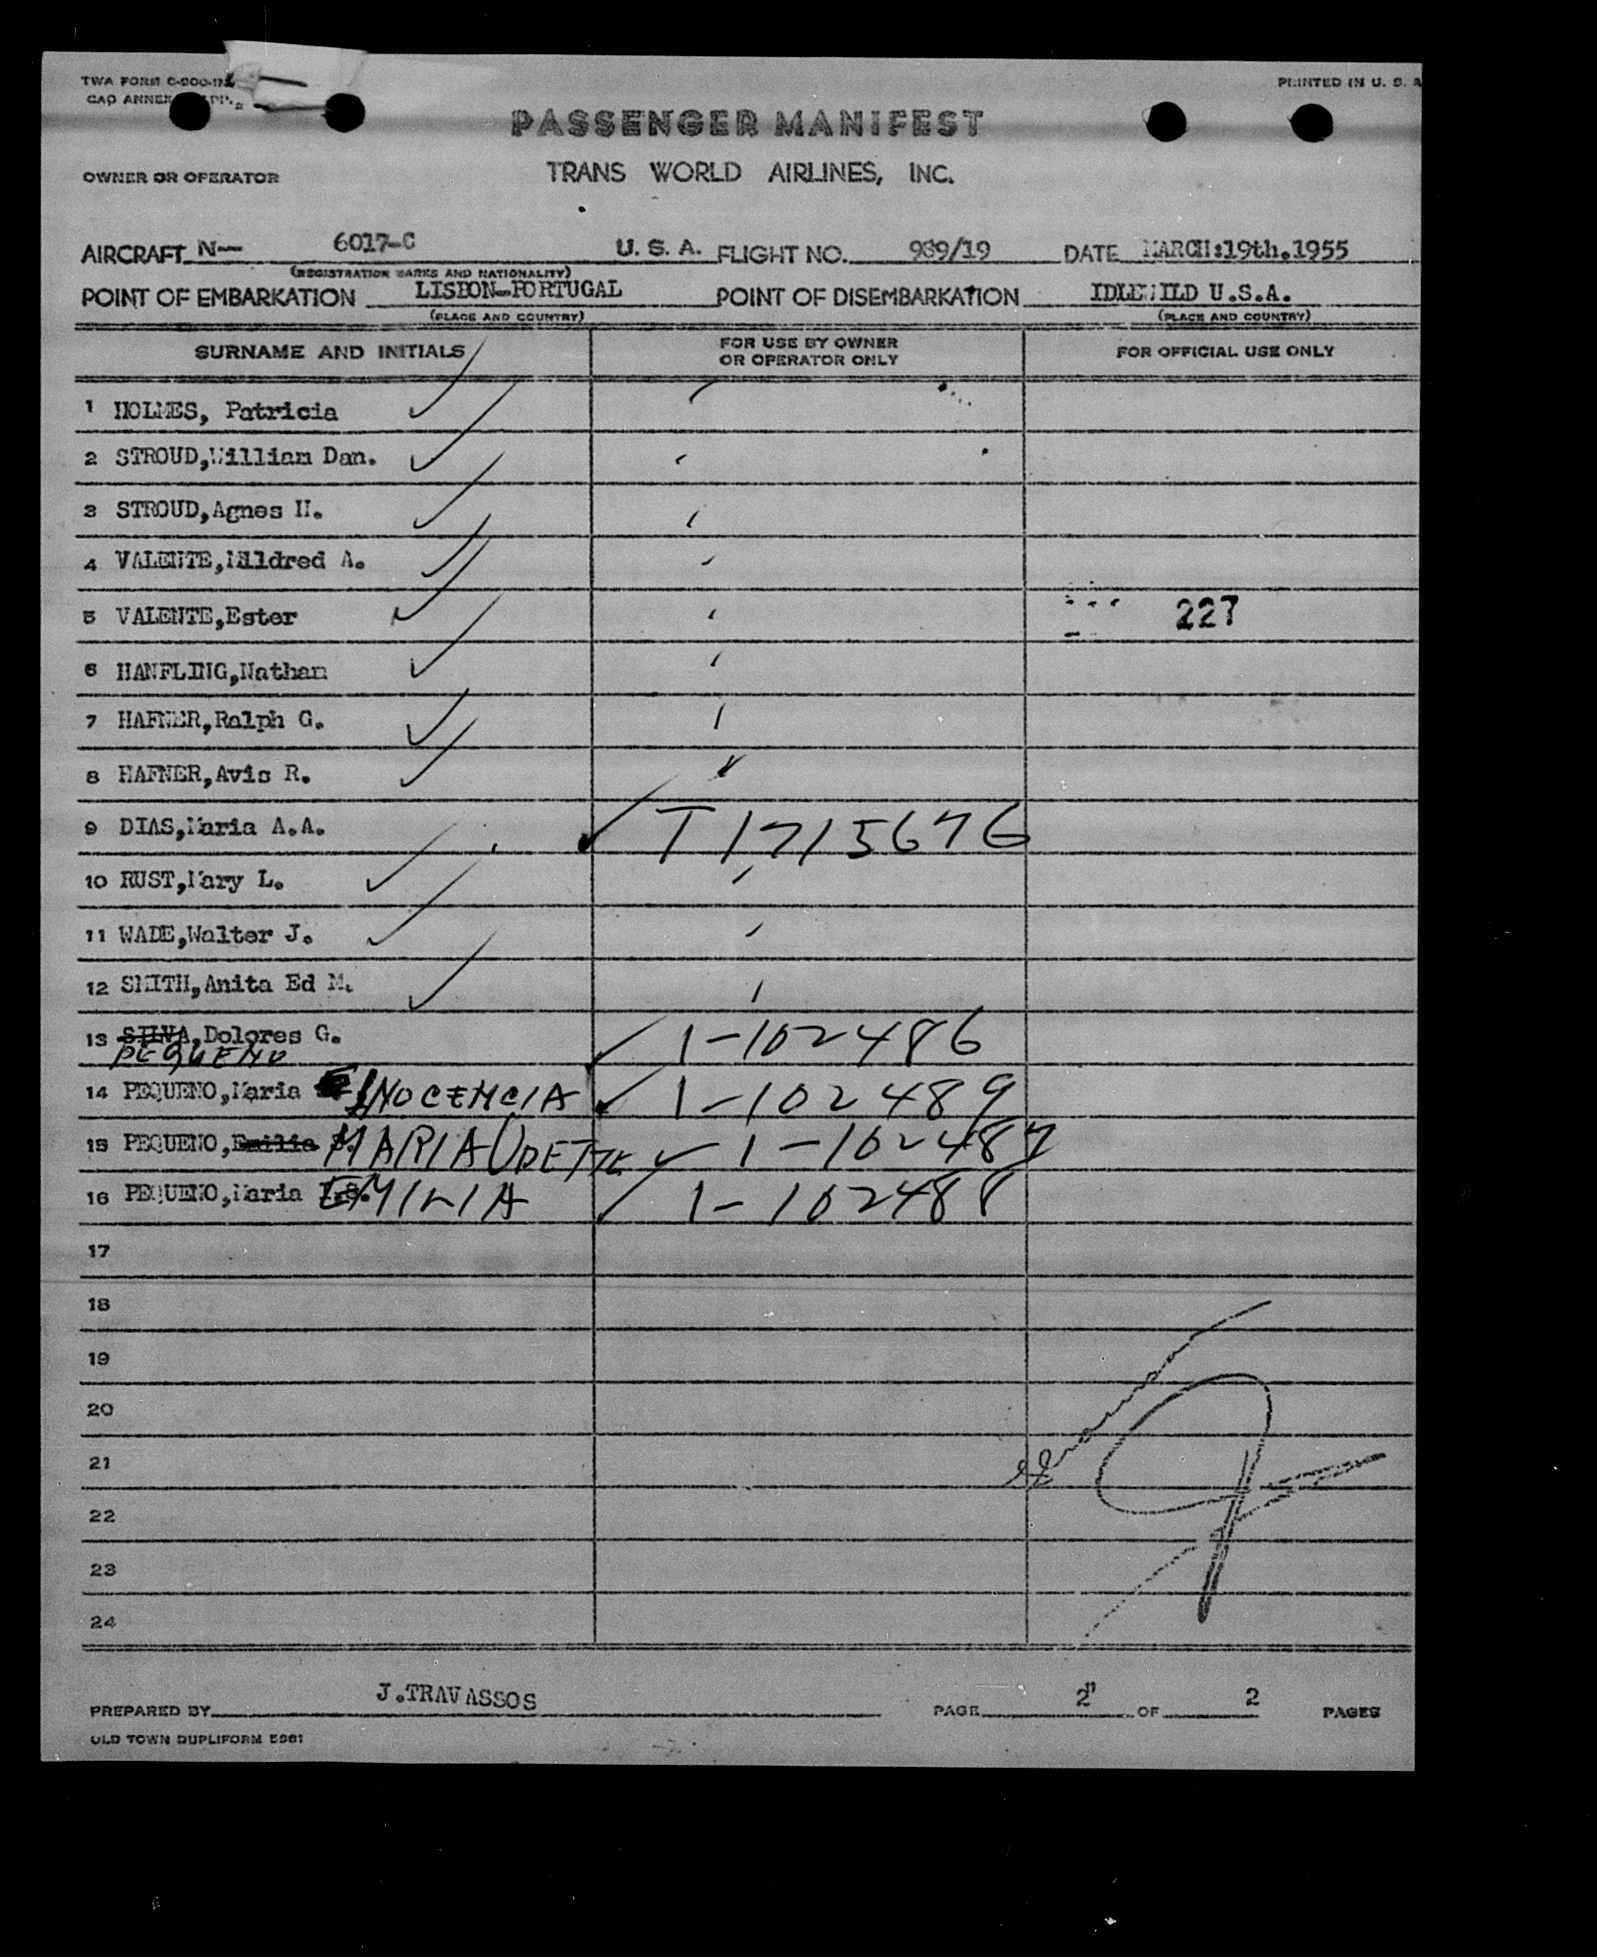 TWA FORM
PRINTED IN U. S. A
CAO ANNEX
PASSENGER MANIFEST
OWNER OR OPERATOR TRANS WORLD AIRLINES, INC.
AIRCRAFT N- 6017-C U. S. A. FLIGHT NO. 969/19 DATE MARCH:19th.1955
(REGISTRATION MARKS AND NATIONALITY)
POINT OF EMBARKATION LISBON-PORTUGAL POINT OF DISEMBARKATION IDLEWILD U.S.A.
(PLACE AND COUNTRY) (PLACE AND COUNTRY)
SURNAME AND INITIALS FOR USE BY OWNER OR OPERATOR ONLY FOR OFFICIAL USE ONLY
1 HOLMES, Patricia
2 STROUD,William Dan.
3 STROUD,Agnes H.
4 VALENTE,Mildred A.
5 VALENTE,Ester 227
6 HANFLING,Nathan
7 HAFNER,Ralph G.
8 HAFNER,Avis R.
9 DIAS,Maria A.A. T1715676
10 RUST,Mary L.
11 WADE,Walter J.
12 SMITH,Anita Ed M.
13 SILVA,Dolores G. 1-102486
PEQUENO
14 PEQUENO,Maria INOCENCIA 1-102489
15 PEQUENO,Emilia MARIA ODETTE 1-102487
16 PEQUENO,Maria EMILIA 1-102488
17
18
19
20
21
22
23
24
PREPARED BY J.TRAVASSOS PAGE 2" OF 2 PAGES
OLD TOWN DUPLIFORM